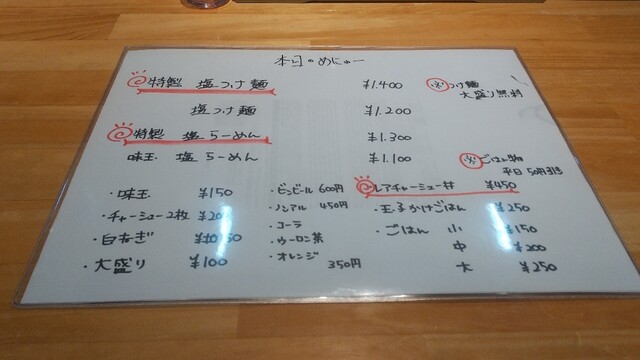 本日のめにゅー
特製 塩つけ麺 ¥1.400
※ つけ麺
大盛り無料
塩つけ麺 ¥1.200
特製 塩らーめん ¥1.300
味玉 塩らーめん ¥1.100
※ ごはん物
平日50円引き
・味玉 ¥150
・チャーシュー2枚 ¥200
・白ねぎ
・大盛り ¥100
・ビンビール 600円
・ノンアル 450円
・コーラ
・ウーロン茶
・オレンジ
350円
レアチャーシュー丼 ¥450
・玉子かけごはん ¥250
・ごはん 小 ¥150
中 ¥200
大 ¥250